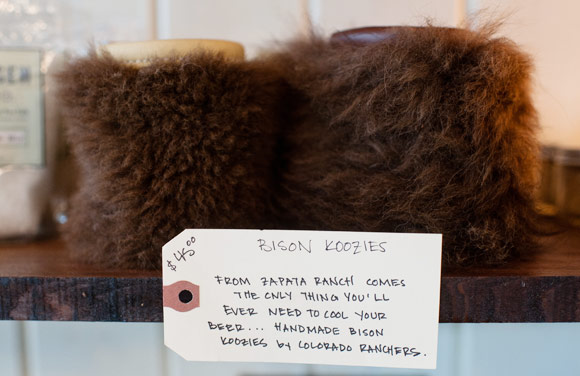 $45.00
BISON KOOZIES
FROM ZAPATA RANCH COMES
THE ONLY THING YOU'LL
EVER NEED TO COOL YOUR
BEER... HANDMADE BISON
KOOZIES by COLORADO RANCHERS.